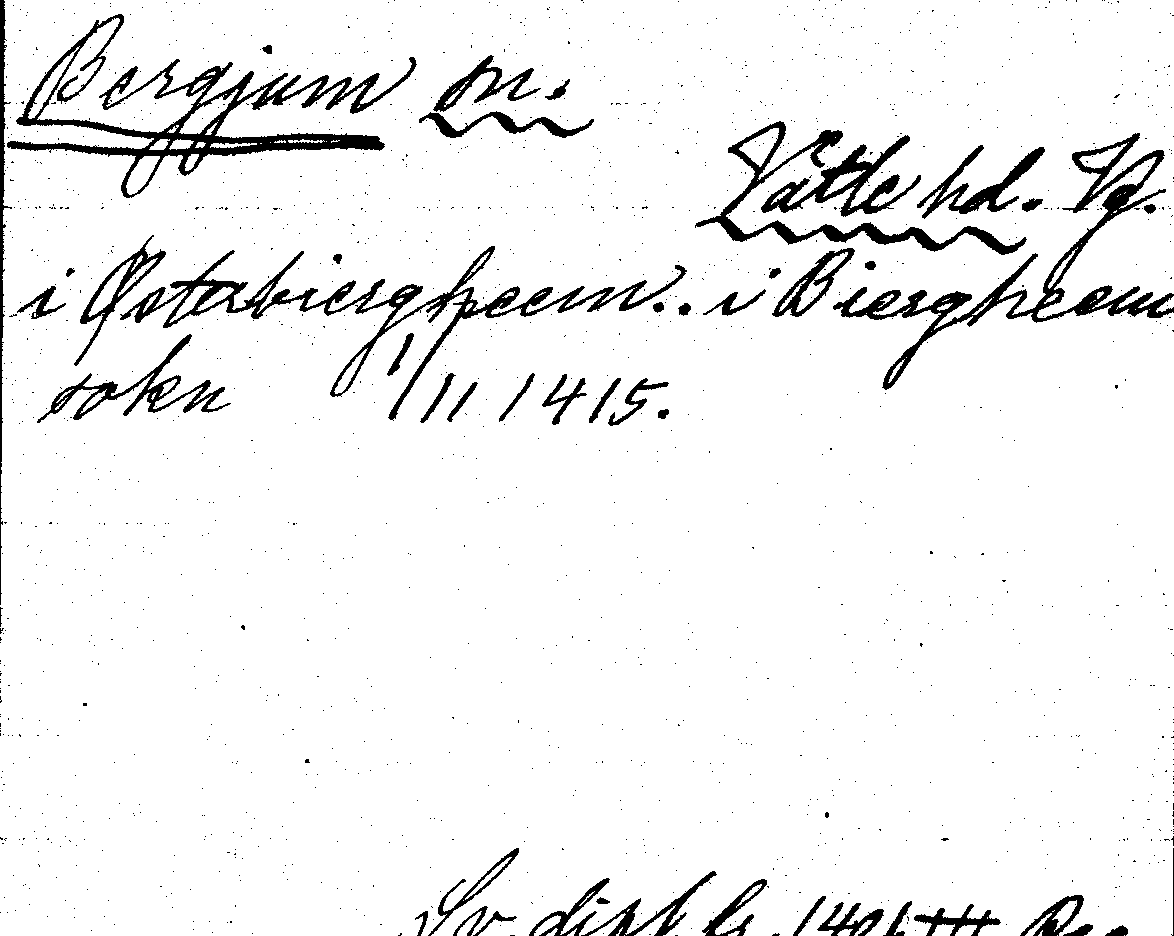 Bergjum sn.
Vättle hd. Vg.
i Østabiergheem.. i Biergheem
sokn 1/11 1415.
Sv. dipl fr. 1401 III